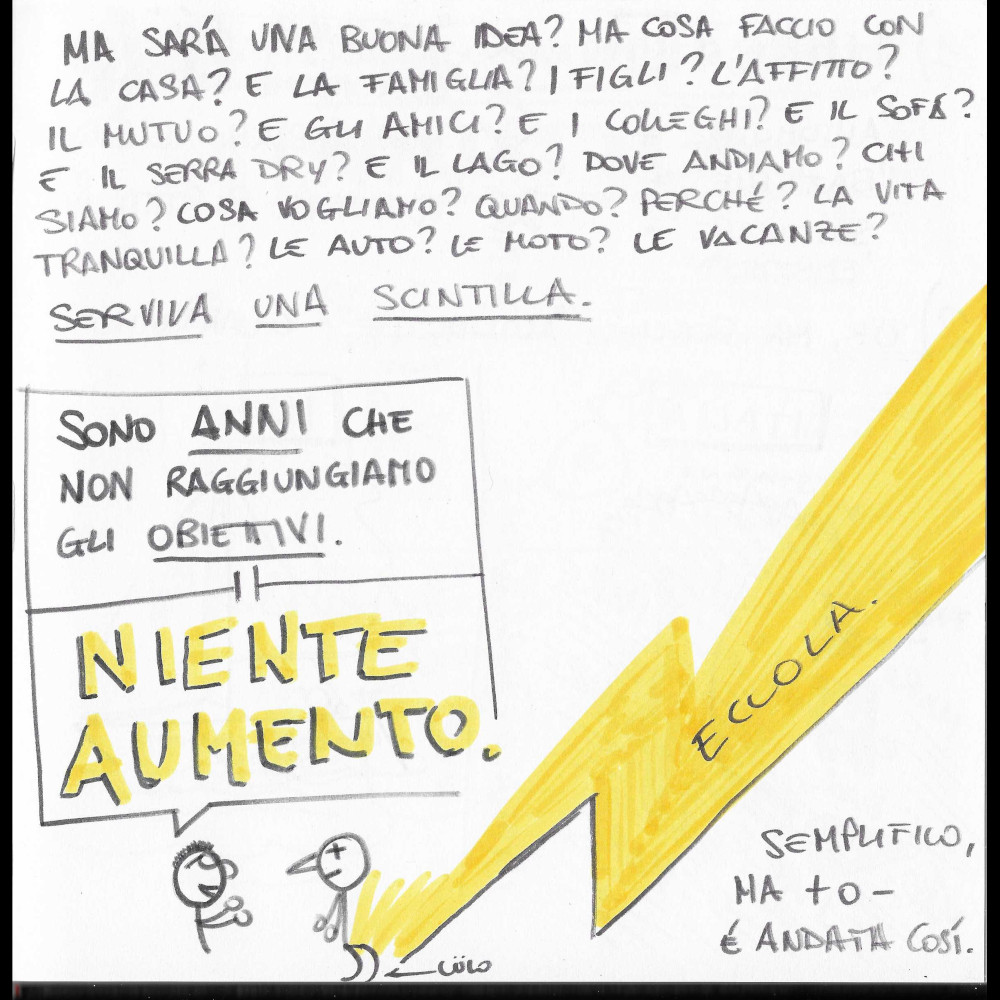 MA SARÁ UNA BUONA IDEA? MA COSA FACCIO CON
LA CASA? E LA FAMIGLIA? I FIGLI? L'AFFITTO?
IL MUTUO? E GLI AMICI? E I COLLEGHI? E IL SOFÁ?
E IL SERRA DRY? E IL LAGO? DOVE ANDIAMO? CHI
SIAMO? COSA VOGLIAMO? QUANDO? PERCHÉ? LA VITA
TRANQUILLA? LE AUTO? LE MOTO? LE VACANZE?
SERVIVA UNA SCINTILLA.
SONO ANNI CHE
NON RAGGIUNGIAMO
GLI OBIETTIVI.
NIENTE
AUMENTO.
ECCOLA.
SEMPLIFICO,
MA + O -
É ANDATA COSÍ.